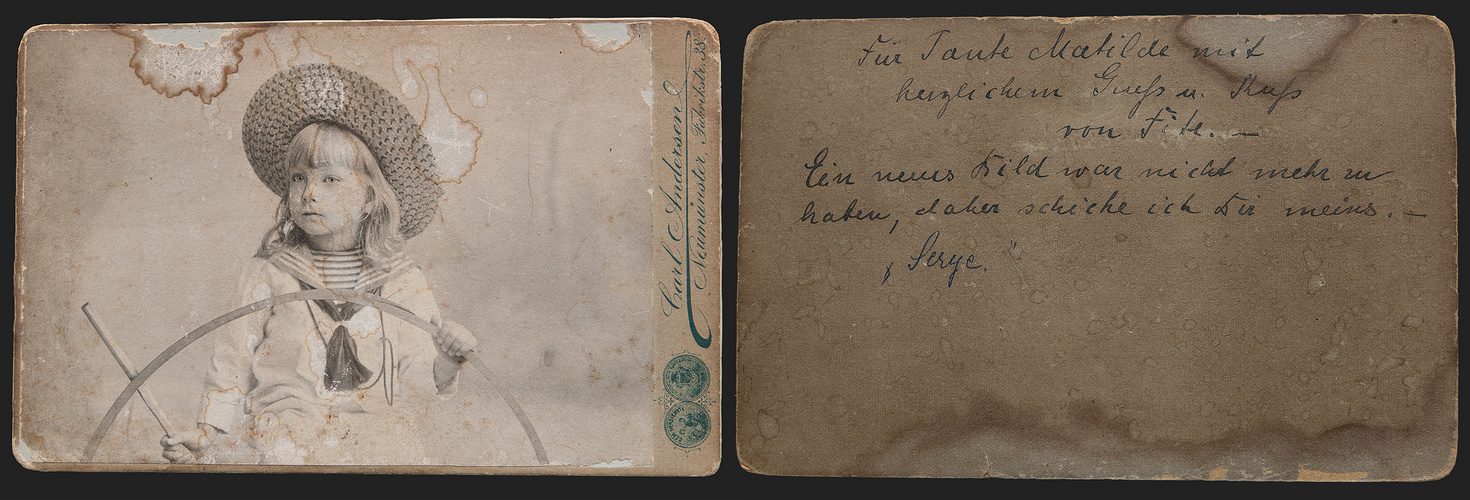 Carl Andersen
Neumünster, Fabrikstr. 38.
Für Tante Matilde mit
herzlichem Gruß u. Kuß
von Fite. —
Ein neues Bild war nicht mehr zu
haben, daher schicke ich Dir meins. —
„Serge."